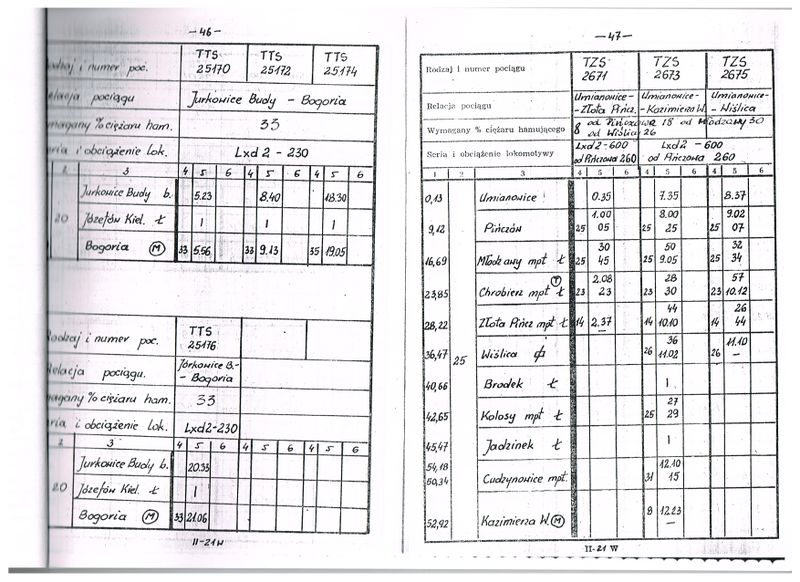 -46-
Rodzaj i numer poc. TTS 25170 TTS 25172 TTS 25174
Relacja pociągu Jurkowice Budy - Bogoria
%ciężaru ham. 33
i obciążenie lok. Lxd2 - 230
2 3 4 5 6 4 5 6 4 5 6
Jurkowice Budy b. 5.23 8.40 18.30
20 Józefów Kiel. Ł | | |
Bogoria (M) 33 5.56 33 9.13 35 19.05
Rodzaj i numer poc. TTS 25176
Relacja pociągu. Jurkowice B.- - Bogoria
% ciężaru ham. 33
i obciążenie lok. Lxd2-230
2 3 4 5 6 4 5 6 4 5 6
Jurkowice Budy b. 20.33
20 Józefów Kiel. Ł |
Bogoria (M) 33 21.06
II-21W
-47-
Rodzaj i numer pociągu TZS 2671 TZS 2673 TZS 2675
Relacja pociągu Umianowice- -Złota Pińcz. Umianowice- -Kazimierza W. Umianowice- -Wiślica
Wymagany % ciężaru hamującego 8 od Pińczowa 18 od Młodzawy 30
od Wiślicy 26
Seria i obciążenie lokomotywy Lxd2-600 od Pińczowa 260 Lxd2 - 600 od Pińczowa 260
1 2 3 4 5 6 4 5 6 4 5 6
0,13 Umianowice 0.35 7.35 8.37
1.00 8.00 9.02
9,12 Pińczów 25 05 25 25 25 07
30 50 32
16,69 Młodzawy mpt Ł 25 45 25 9.05 25 34
(T) 2.08 28 57
23,85 Chroberz mpt Ł 23 23 23 30 23 10.12
44 26
28,22 Złota Pińcz mpt Ł 14 2.37 14 10.10 14 44
36 11.10
36,47 25 Wiślica 26 11.02 26 -
40,66 Brodek Ł |
27
42,65 Kolosy mpt Ł 25 29
45,47 Jadzinek Ł |
54,18 12.10
50,34 Cudzynowice mpt. 31 15
52,92 Kazimierza W. (M) 8 12.23
-
II-21 W